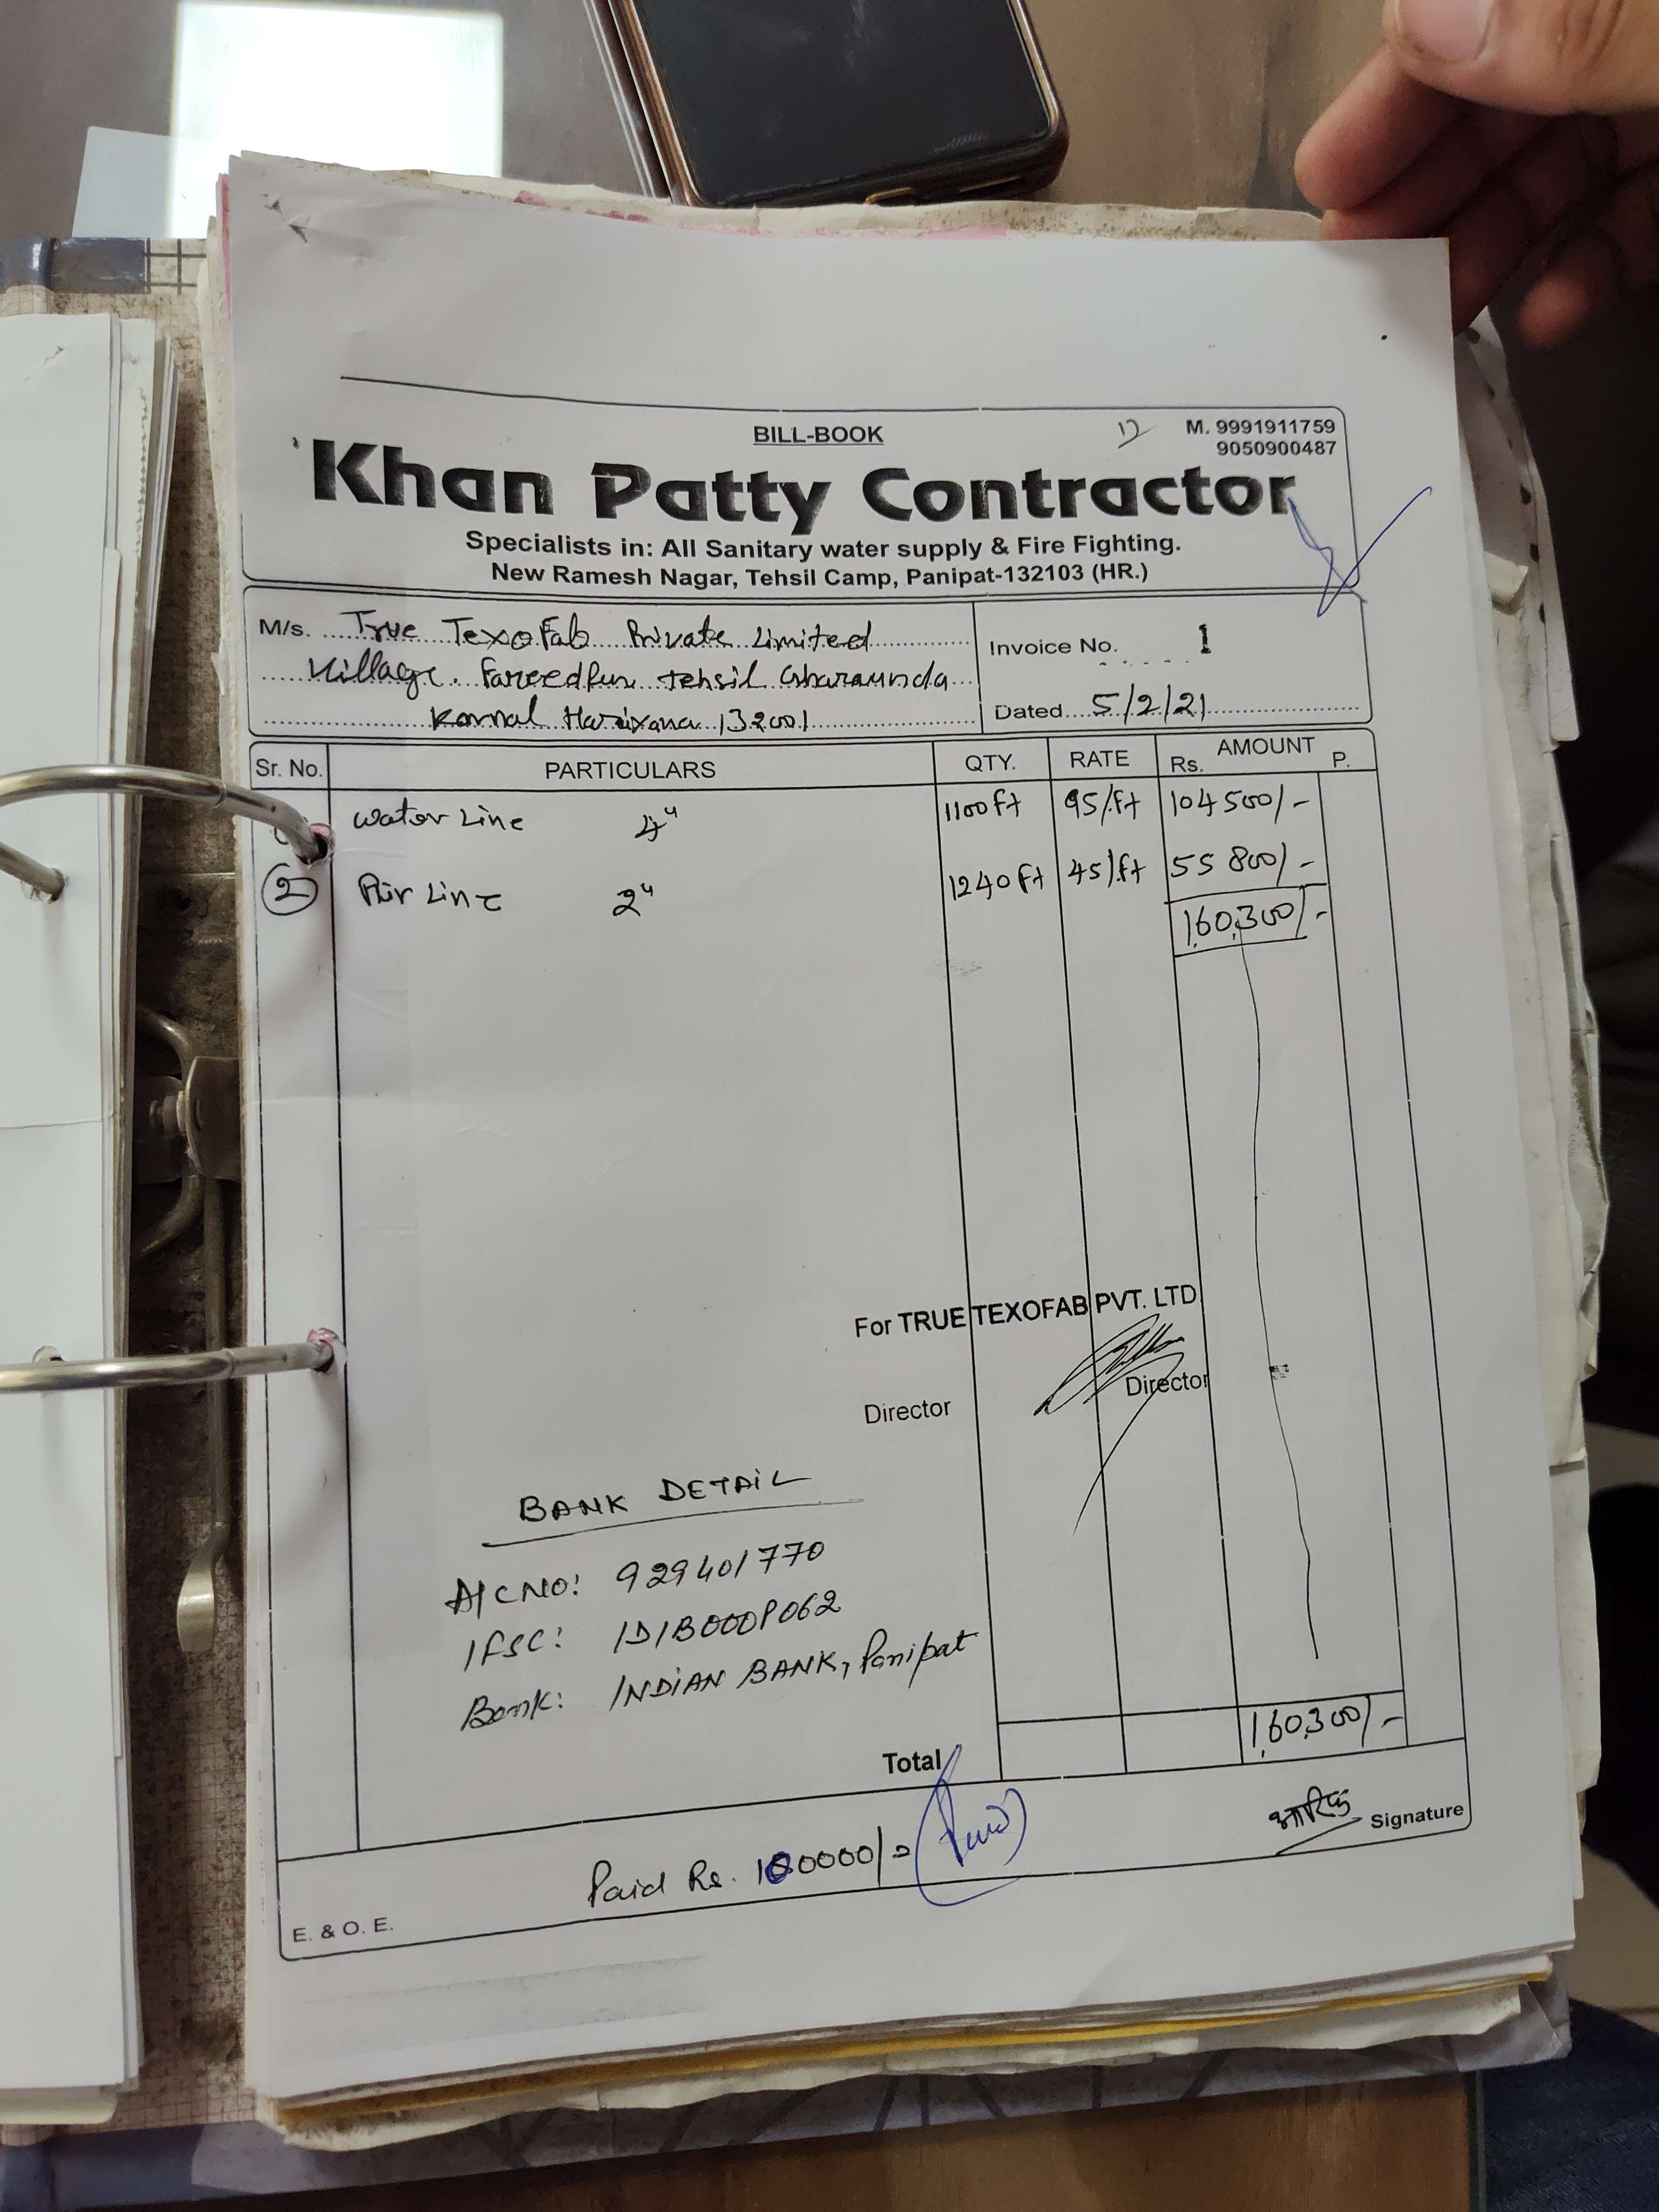 BILL-BOOK
M. 9991911759
9050900487
Khan Patty Contractor
Specialists in: All Sanitary water supply & Fire Fighting.
New Ramesh Nagar, Tehsil Camp, Panipat-132103 (HR.)
M/s. True TexoFab Private Limited
Village. Fareedpur tehsil Gharaunda
Karnal Harixana 132001
Invoice No. 1
Dated 5/2/21
Sr. No. PARTICULARS QTY. RATE AMOUNT Rs. P.
Water Line 4" 1100 ft 95/ft 104500/-
2 Air Line 2" 1240 ft 45/ft 55800/-
1,60,300/-
For TRUE TEXOFAB PVT. LTD
Director Director
BANK DETAIL
A/C NO: 929401770
IFSC: IDIB000P062
Bank: INDIAN BANK, Panipat
Total 1,60,300/-
Paid Rs. 100000/=
Signature
E. & O. E.